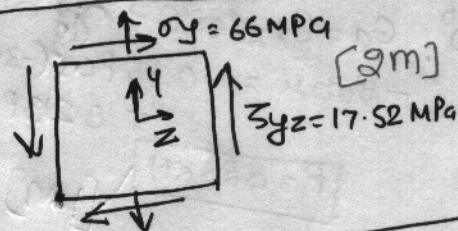 σy = 66 MPa
[2m]
y
z
τyz = 17.52 MPa